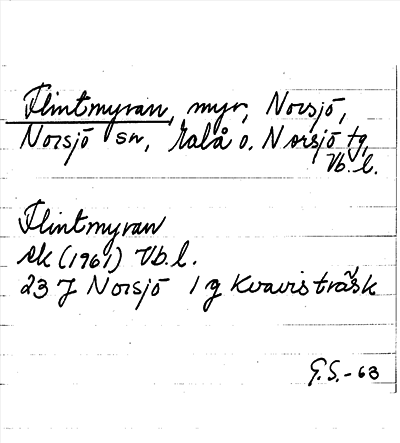 Flintmyran, myr, Norsjö,
Norsjö sn, Malå o. Norsjö tg,
Vb. l.
Flintmyran
ek (1961) Vb. l.
23 J Norsjö 1 g Kvavisträsk
G.S.-63